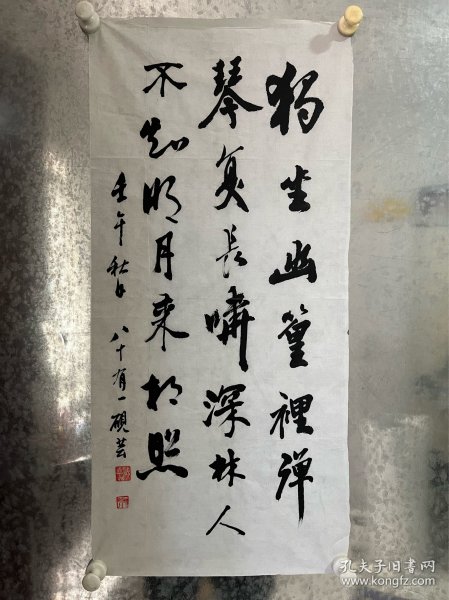 獨坐幽篁裡彈
琴復長嘯深林人
不知明月来相照
壬午秋日 八十有一硯芸
孔夫子旧书网
www.kongfz.com